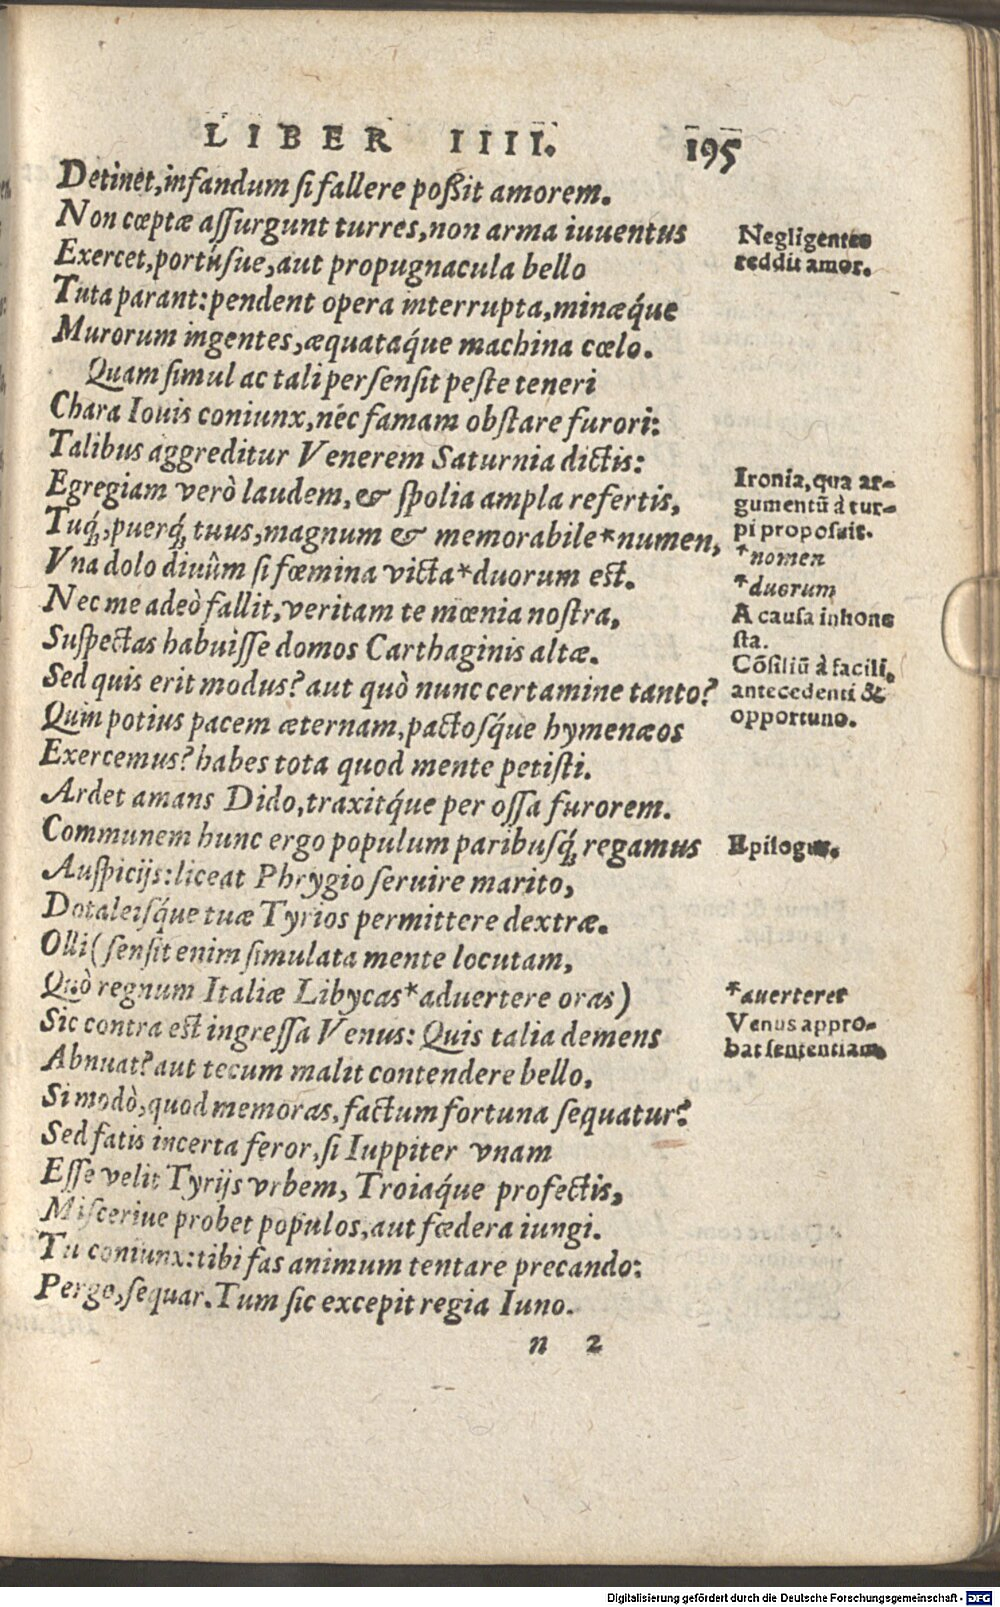 LIBER IIII. 195
Detinet, infandum si fallere poßit amorem.
Non cœptæ aſſurgunt turres, non arma iuuentus
Exercet, portúsue, aut propugnacula bello
Tuta parant: pendent opera interrupta, minæq́ue
Murorum ingentes, æquataq́ue machina cœlo.
Quam ſimul ac tali perſenſit peſte teneri
Chara Iouis coniunx, nec famam obſtare furori:
Talibus aggreditur Venerem Saturnia dictis:
Egregiam verò laudem, & ſpolia ampla refertis,
Tuq́;, puerq́; tuus, magnum & memorabile*numen,
Vna dolo diuûm ſi fœmina victa*duorum est.
Nec me adeò fallit, veritam te mœnia noſtra,
Suſpectas habuiſſe domos Carthaginis altæ.
Sed quis erit modus? aut quò nunc certamine tanto?
Quin potius pacem æternam, pactoſq́ue hymenæos
Exercemus? habes tota quod mente petiſti.
Ardet amans Dido, traxitq́ue per oſſa furorem.
Communem hunc ergo populum paribuſq́; regamus
Auſpicijs: liceat Phrygio ſeruire marito,
Dotaleiſq́ue tuæ Tyrios permittere dextræ.
Olli (ſenſit enim ſimulata mente locutam,
Quò regnum Italiæ Libycas*aduertere oras)
Sic contra est ingreſſa Venus: Quis talia demens
Abnuat? aut tecum malit contendere bello,
Si modò, quod memoras, factum fortuna ſequatur?
Sed fatis incerta feror, ſi Iuppiter vnam
Eſſe velit Tyrijs vrbem, Troiaq́ue profectis,
Miſceriue probet populos, aut fœdera iungi.
Tu coniunx: tibi fas animum tentare precando:
Pergo, ſequar. Tum ſic excepit regia Iuno.
n 2
Negligentes
reddit amor.
Ironia, qua ar-
gumentũ à tur-
pi propoſuit.
*nomen
*duorum
A cauſa inhone
ſta.
Cõſiliũ à facili,
antecedenti &
opportuno.
Epilogus.
*auerteret
Venus appro-
bat ſententiam.
Digitalisierung gefördert durch die Deutsche Forschungsgemeinschaft - DFG